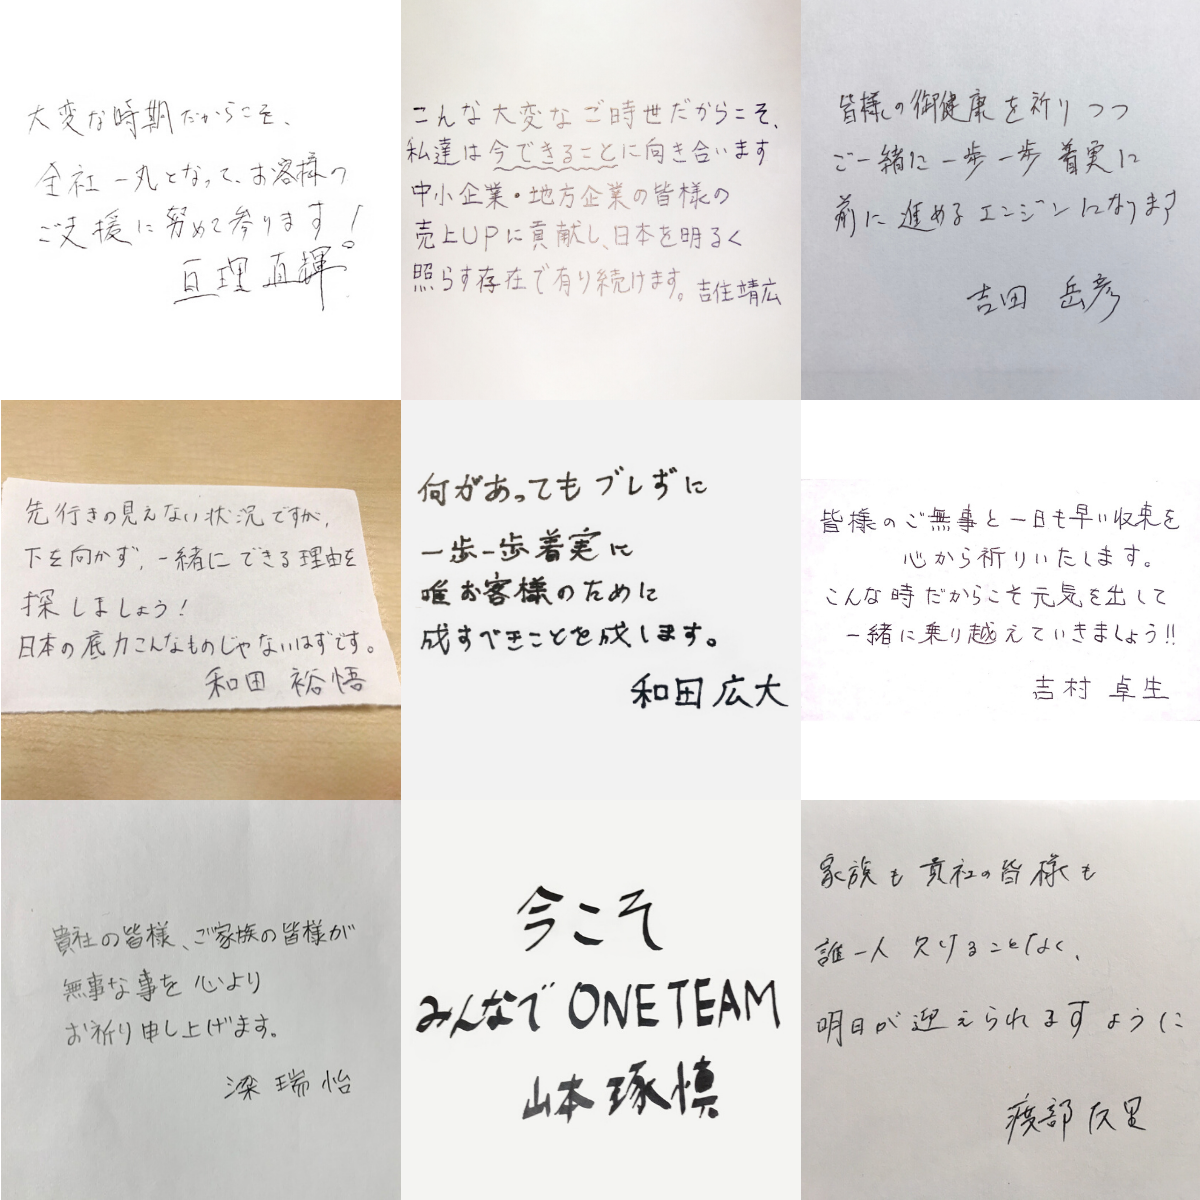 大変な時期だからこそ、
全社一丸となって、お客様の
ご支援に努めて参ります!
亘理 直輝
こんな大変なご時世だからこそ、
私達は今できることに向き合います
中小企業・地方企業の皆様の
売上UPに貢献し、日本を明るく
照らす存在で有り続けます。 吉住靖広
皆様の御健康を祈りつつ
ご一緒に一歩一歩着実に
前に進めるエンジンになります
吉田 岳彦
先行きの見えない状況ですが、
下を向かず、一緒にできる理由を
探しましょう!
日本の底力こんなものじゃないはずです。
和田 裕悟
何があってもブレずに
一歩一歩着実に
唯お客様のために
成すべきことを成します。
和田広大
皆様のご無事と一日も早い収束を
心から祈りいたします。
こんな時だからこそ元気を出して
一緒に乗り越えていきましょう!!
吉村 卓生
貴社の皆様、ご家族の皆様が
無事な事を心より
お祈り申し上げます。
梁 瑞怡
今こそ
みんなで ONE TEAM
山本琢慎
家族も貴社の皆様も
誰一人欠けることなく、
明日が迎えられますように
渡部友里